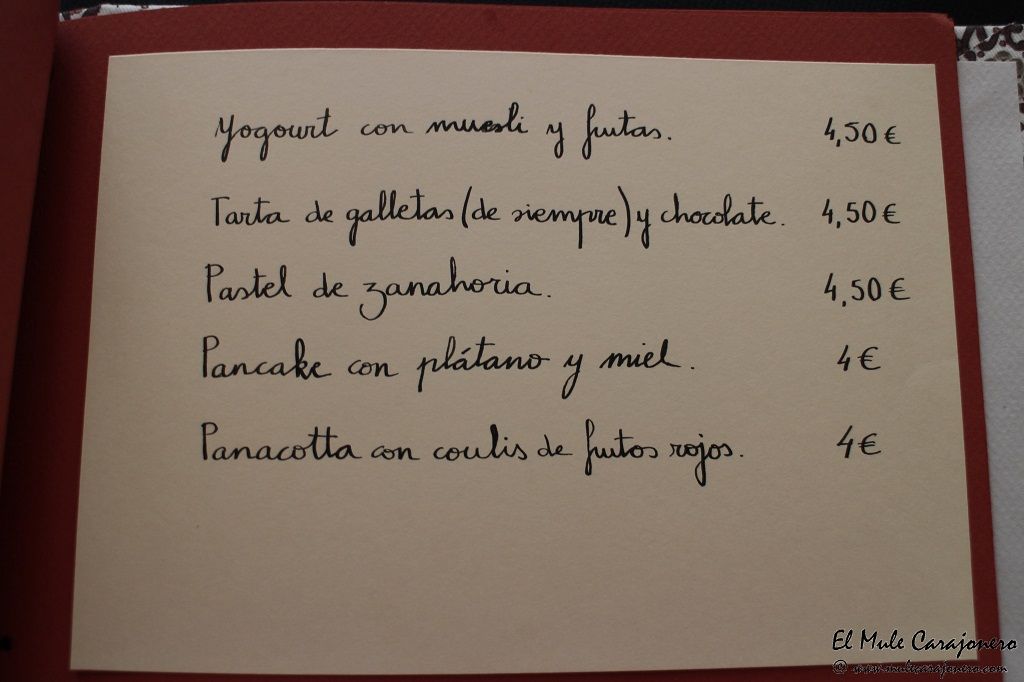 Yogourt con muesli y frutas. 4,50 €
Tarta de galletas (de siempre) y chocolate. 4,50 €
Pastel de zanahoria. 4,50 €
Pancake con plátano y miel. 4 €
Panacotta con coulis de frutos rojos. 4 €
El Mule Carajonero
@ www.mulecarajonero.com